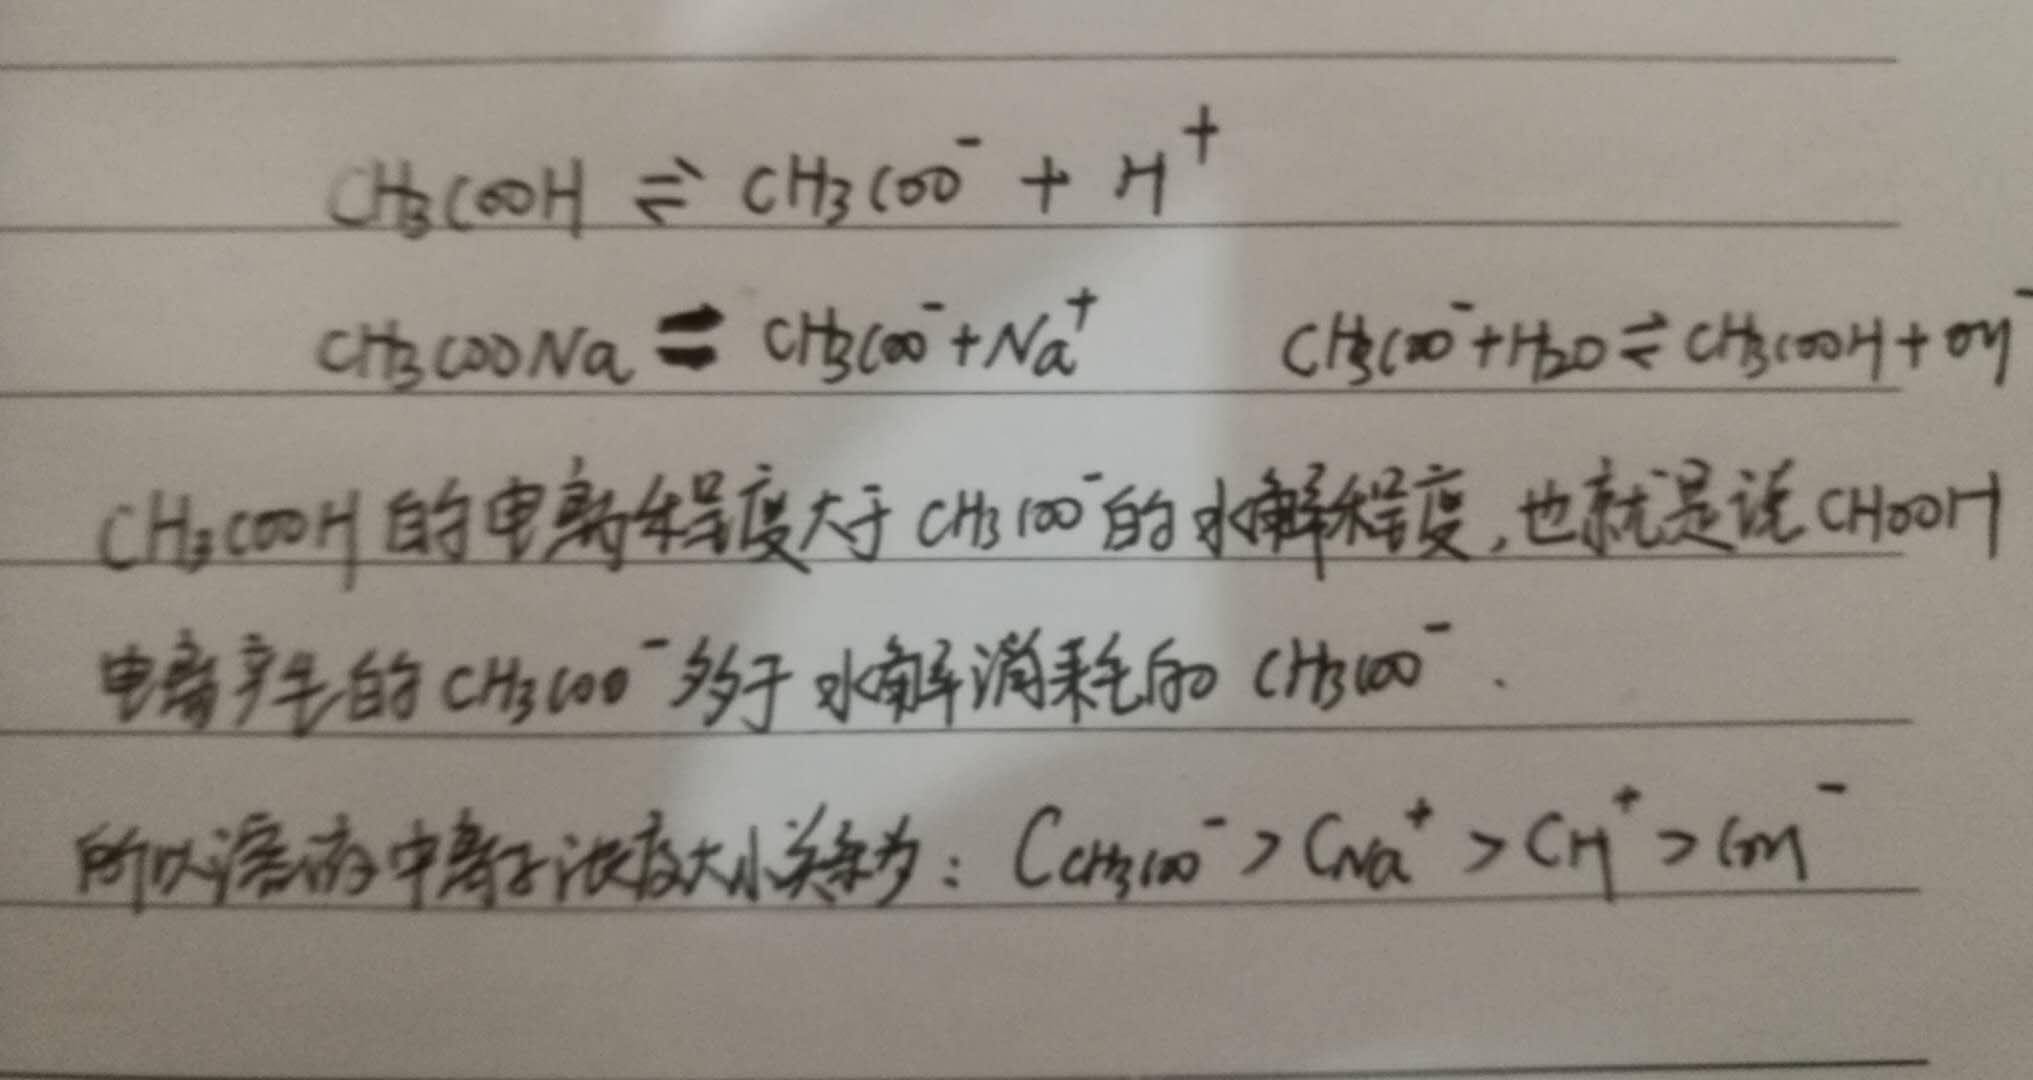 CH₃COOH ⇌ CH₃COO⁻ + H⁺
CH₃COONa = CH₃COO⁻ + Na⁺  CH₃COO⁻ + H₂O ⇌ CH₃COOH + OH⁻
CH₃COOH的电离程度大于CH₃COO⁻的水解程度,也就是说CHOOH
电离产生的CH₃COO⁻多于水解消耗的CH₃COO⁻.
所以溶液中离子浓度大小关系为:C_CH₃COO⁻ > C_Na⁺ > C_H⁺ > C_OH⁻